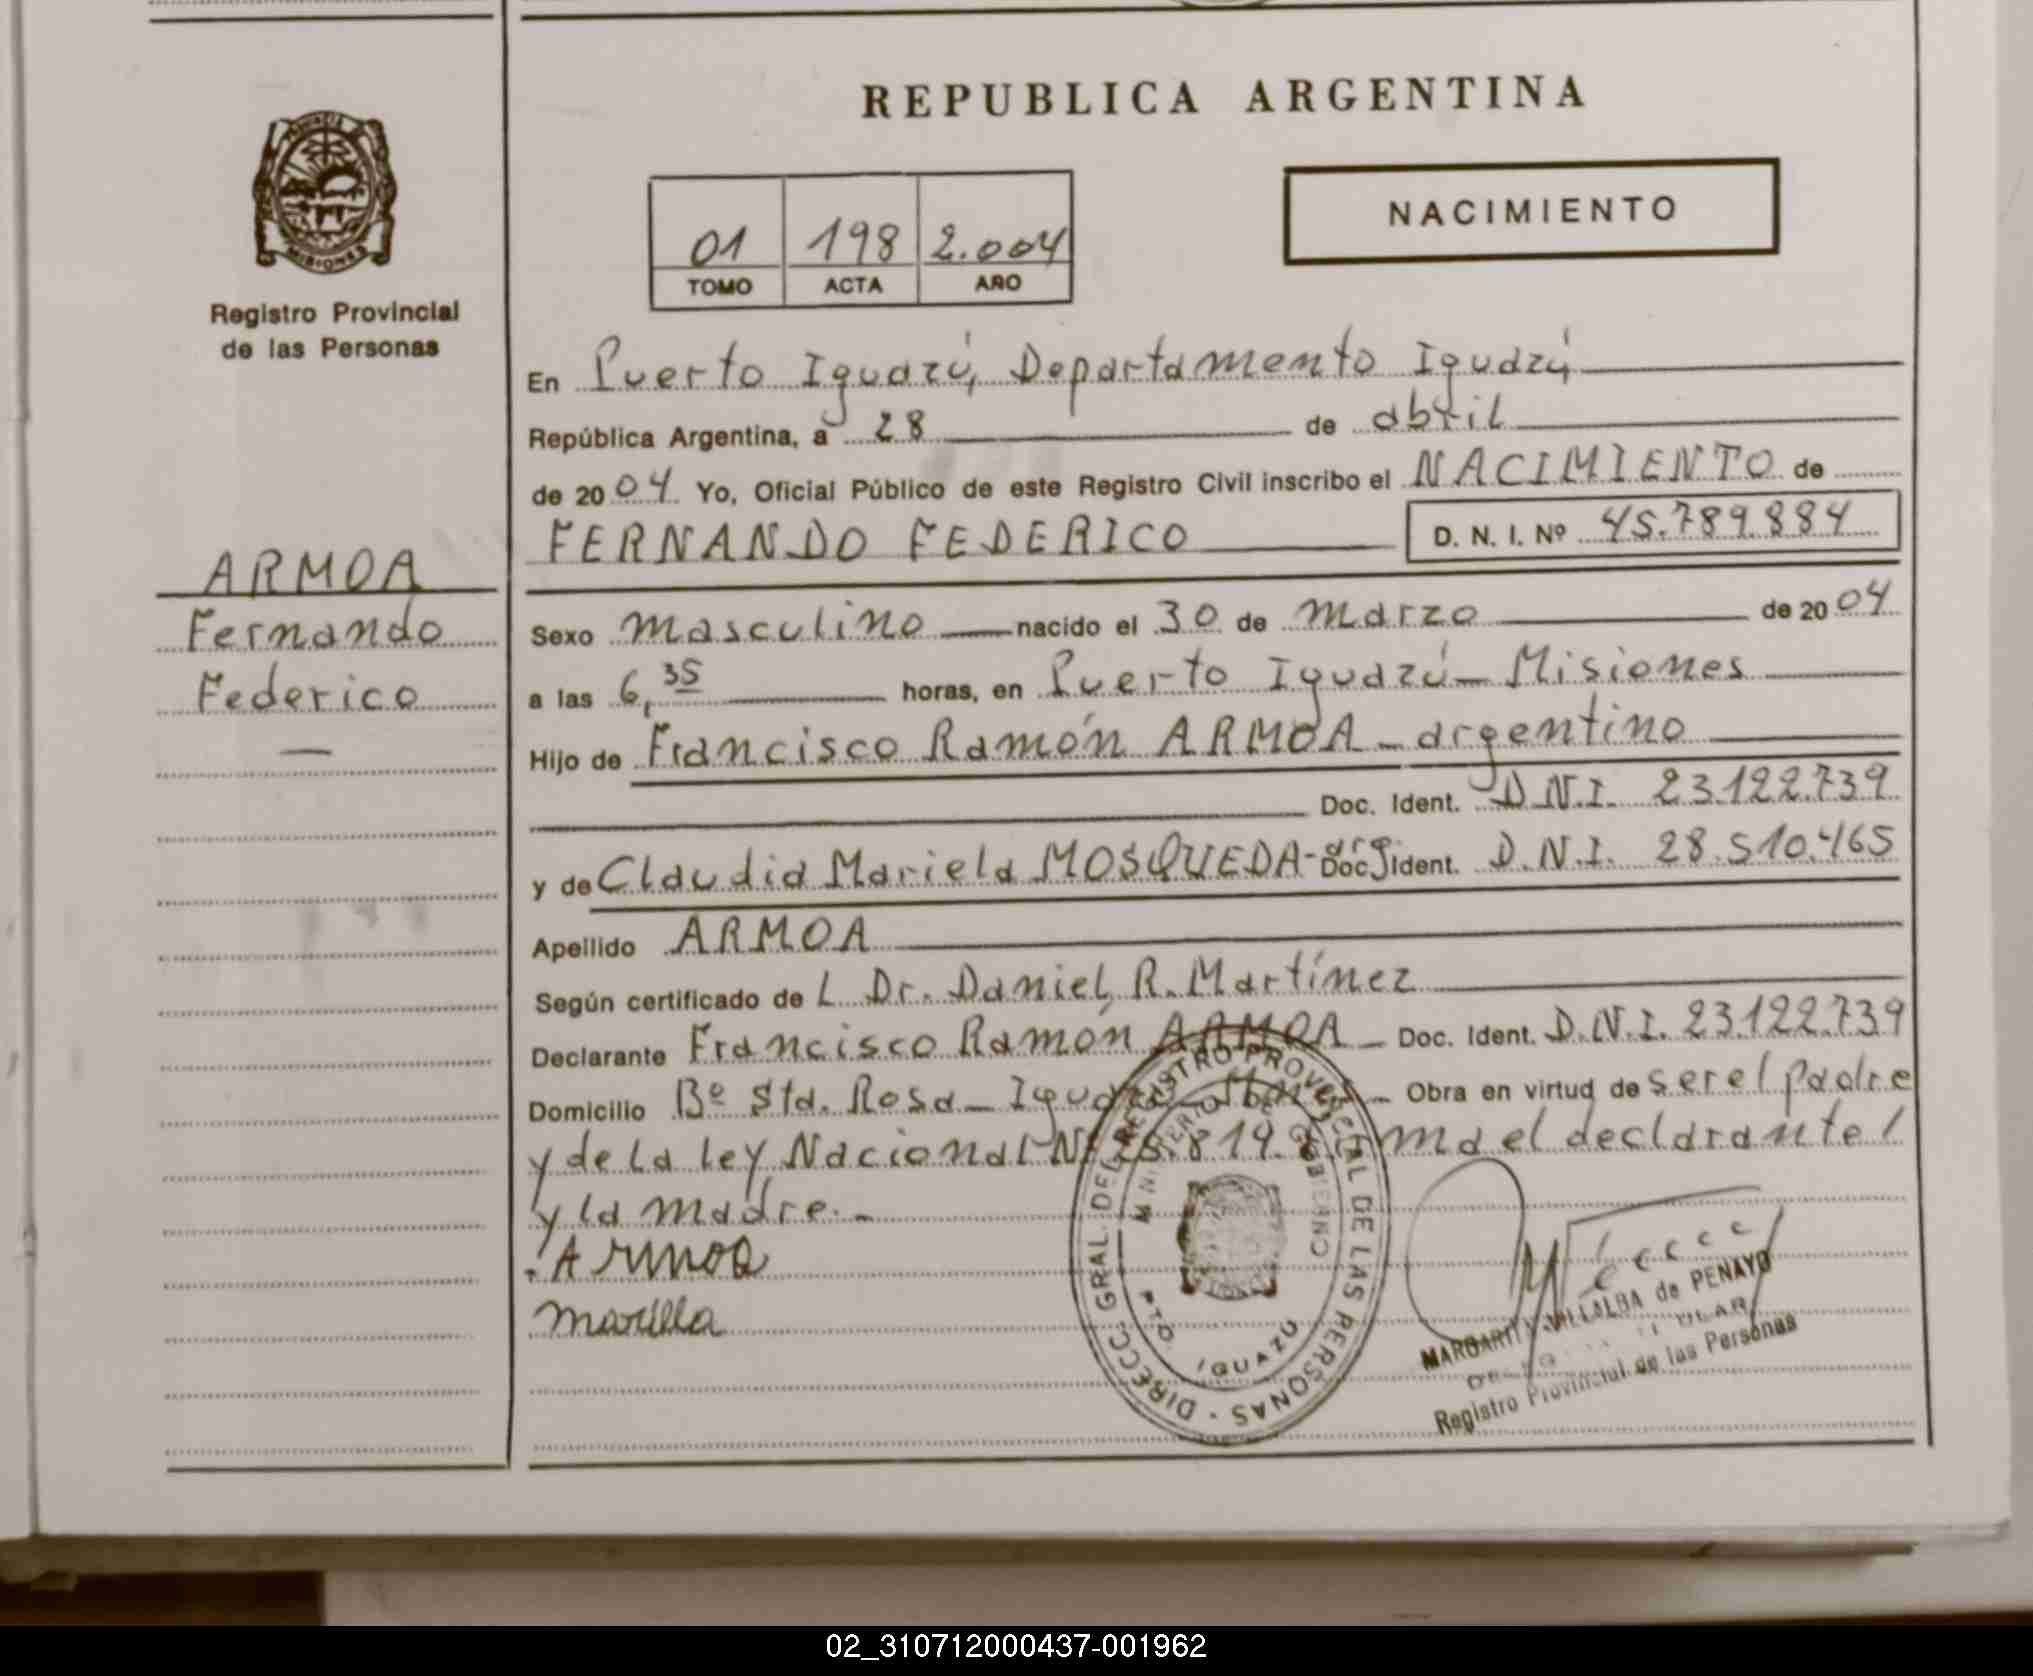 REPUBLICA ARGENTINA
PROVINCIA DE MISIONES
Registro Provincial
de las Personas
NACIMIENTO
01 198 2.004
TOMO ACTA AÑO
En Puerto Iguazú, Departamento Iguazú
República Argentina, a 28 de abril
de 2004 Yo, Oficial Público de este Registro Civil inscribo el NACIMIENTO de
FERNANDO FEDERICO D. N. I. Nº 45.789.884
ARMOA
Fernando
Federico
Sexo masculino nacido el 30 de marzo de 2004
a las 6,35 horas, en Puerto Iguazú - Misiones
Hijo de Francisco Ramón ARMOA - argentino
Doc. Ident. D.N.I. 23.122.739
y de Claudia Mariela MOSQUEDA - arg Doc. Ident. D.N.I. 28.510.465
Apellido ARMOA
Según certificado de L Dr. Daniel R. Martínez
Declarante Francisco Ramón ARMOA - Doc. Ident. D.N.I. 23.122.739
Domicilio Bº Sta. Rosa - Obra en virtud de ser el padre
y de la Ley Nacional Nº 25.819. Firma el declarante /
y la madre. -
Armoa
DIRECC. GRAL. DEL REGISTRO PROVINCIAL DE LAS PERSONAS
MINISTERIO DE GOBIERNO
PTO. IGUAZU
MARGARITA VILLALBA de PENAYO
Registro Provincial de las Personas
02_310712000437-001962